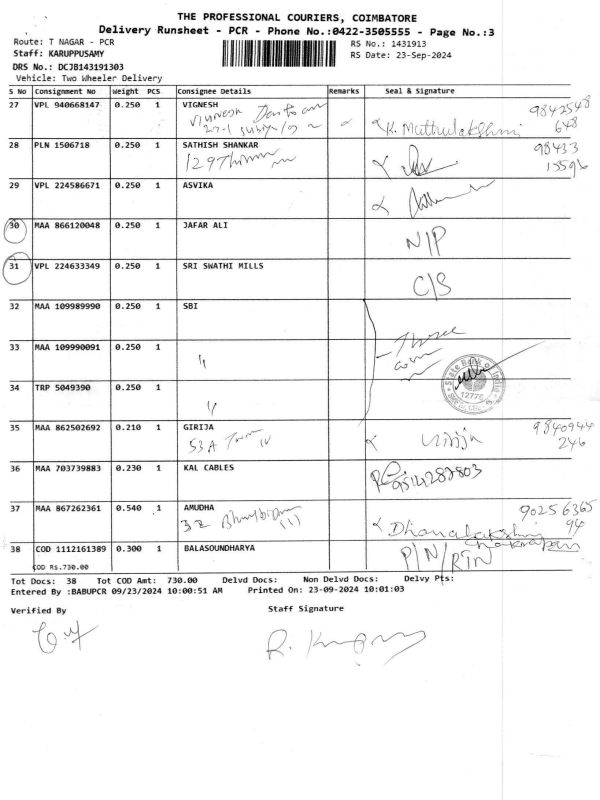 THE PROFESSIONAL COURIERS, COIMBATORE
Delivery Runsheet - PCR - Phone No.:0422-3505555 - Page No.:3
Route: T NAGAR - PCR
RS No.: 1431913
Staff: KARUPPUSAMY
RS Date: 23-Sep-2024
DRS No.: DCJB143191303
Vehicle: Two Wheeler Delivery
S No Consignment No Weight PCS Consignee Details Remarks Seal & Signature
27 VPL 940668147 0.250 1 VIGNESH
Vignesh
K. Muthulakshmi 9842548
648
28 PLN 1506718 0.250 1 SATHISH SHANKAR
98433
15596
29 VPL 224586671 0.250 1 ASVIKA
30 MAA 866120048 0.250 1 JAFAR ALI
N/P
31 VPL 224633349 0.250 1 SRI SWATHI MILLS
C/S
32 MAA 109989990 0.250 1 SBI
Three
33 MAA 109990091 0.250 1 "
State Bank of India
12776
34 TRP 5049390 0.250 1 "
35 MAA 862502692 0.210 1 GIRIJA
53 A
9840944
246
36 MAA 703739883 0.230 1 KAL CABLES
9514287803
37 MAA 867262361 0.540 1 AMUDHA
32
Dhanalakshmi 90256365
94
38 COD 1112161389 0.300 1 BALASOUNDHARYA
P/N/RTN
COD Rs.730.00
Tot Docs: 38 Tot COD Amt: 730.00 Delvd Docs: Non Delvd Docs: Delvy Pts:
Entered By :BABUPCR 09/23/2024 10:00:51 AM Printed On: 23-09-2024 10:01:03
Verified By Staff Signature